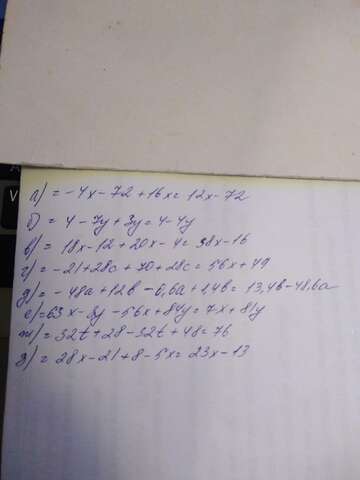 V
а) = -4x - 72 + 16x = 12x - 72
б) = 4 - 7y + 3y = 4 - 4y
в) = 18x - 12 + 20x - 4 = 38x - 16
г) = -21 + 28c + 70 + 28c = 56x + 49
д) = -48a + 12b - 0,6a + 1,4b = 13,4b - 48,6a
е) = 63x - 3y - 56x + 84y = 7x + 81y
ж) = 32t + 28 - 32t + 48 = 76
з) = 28x - 21 + 8 - 5x = 23x - 13